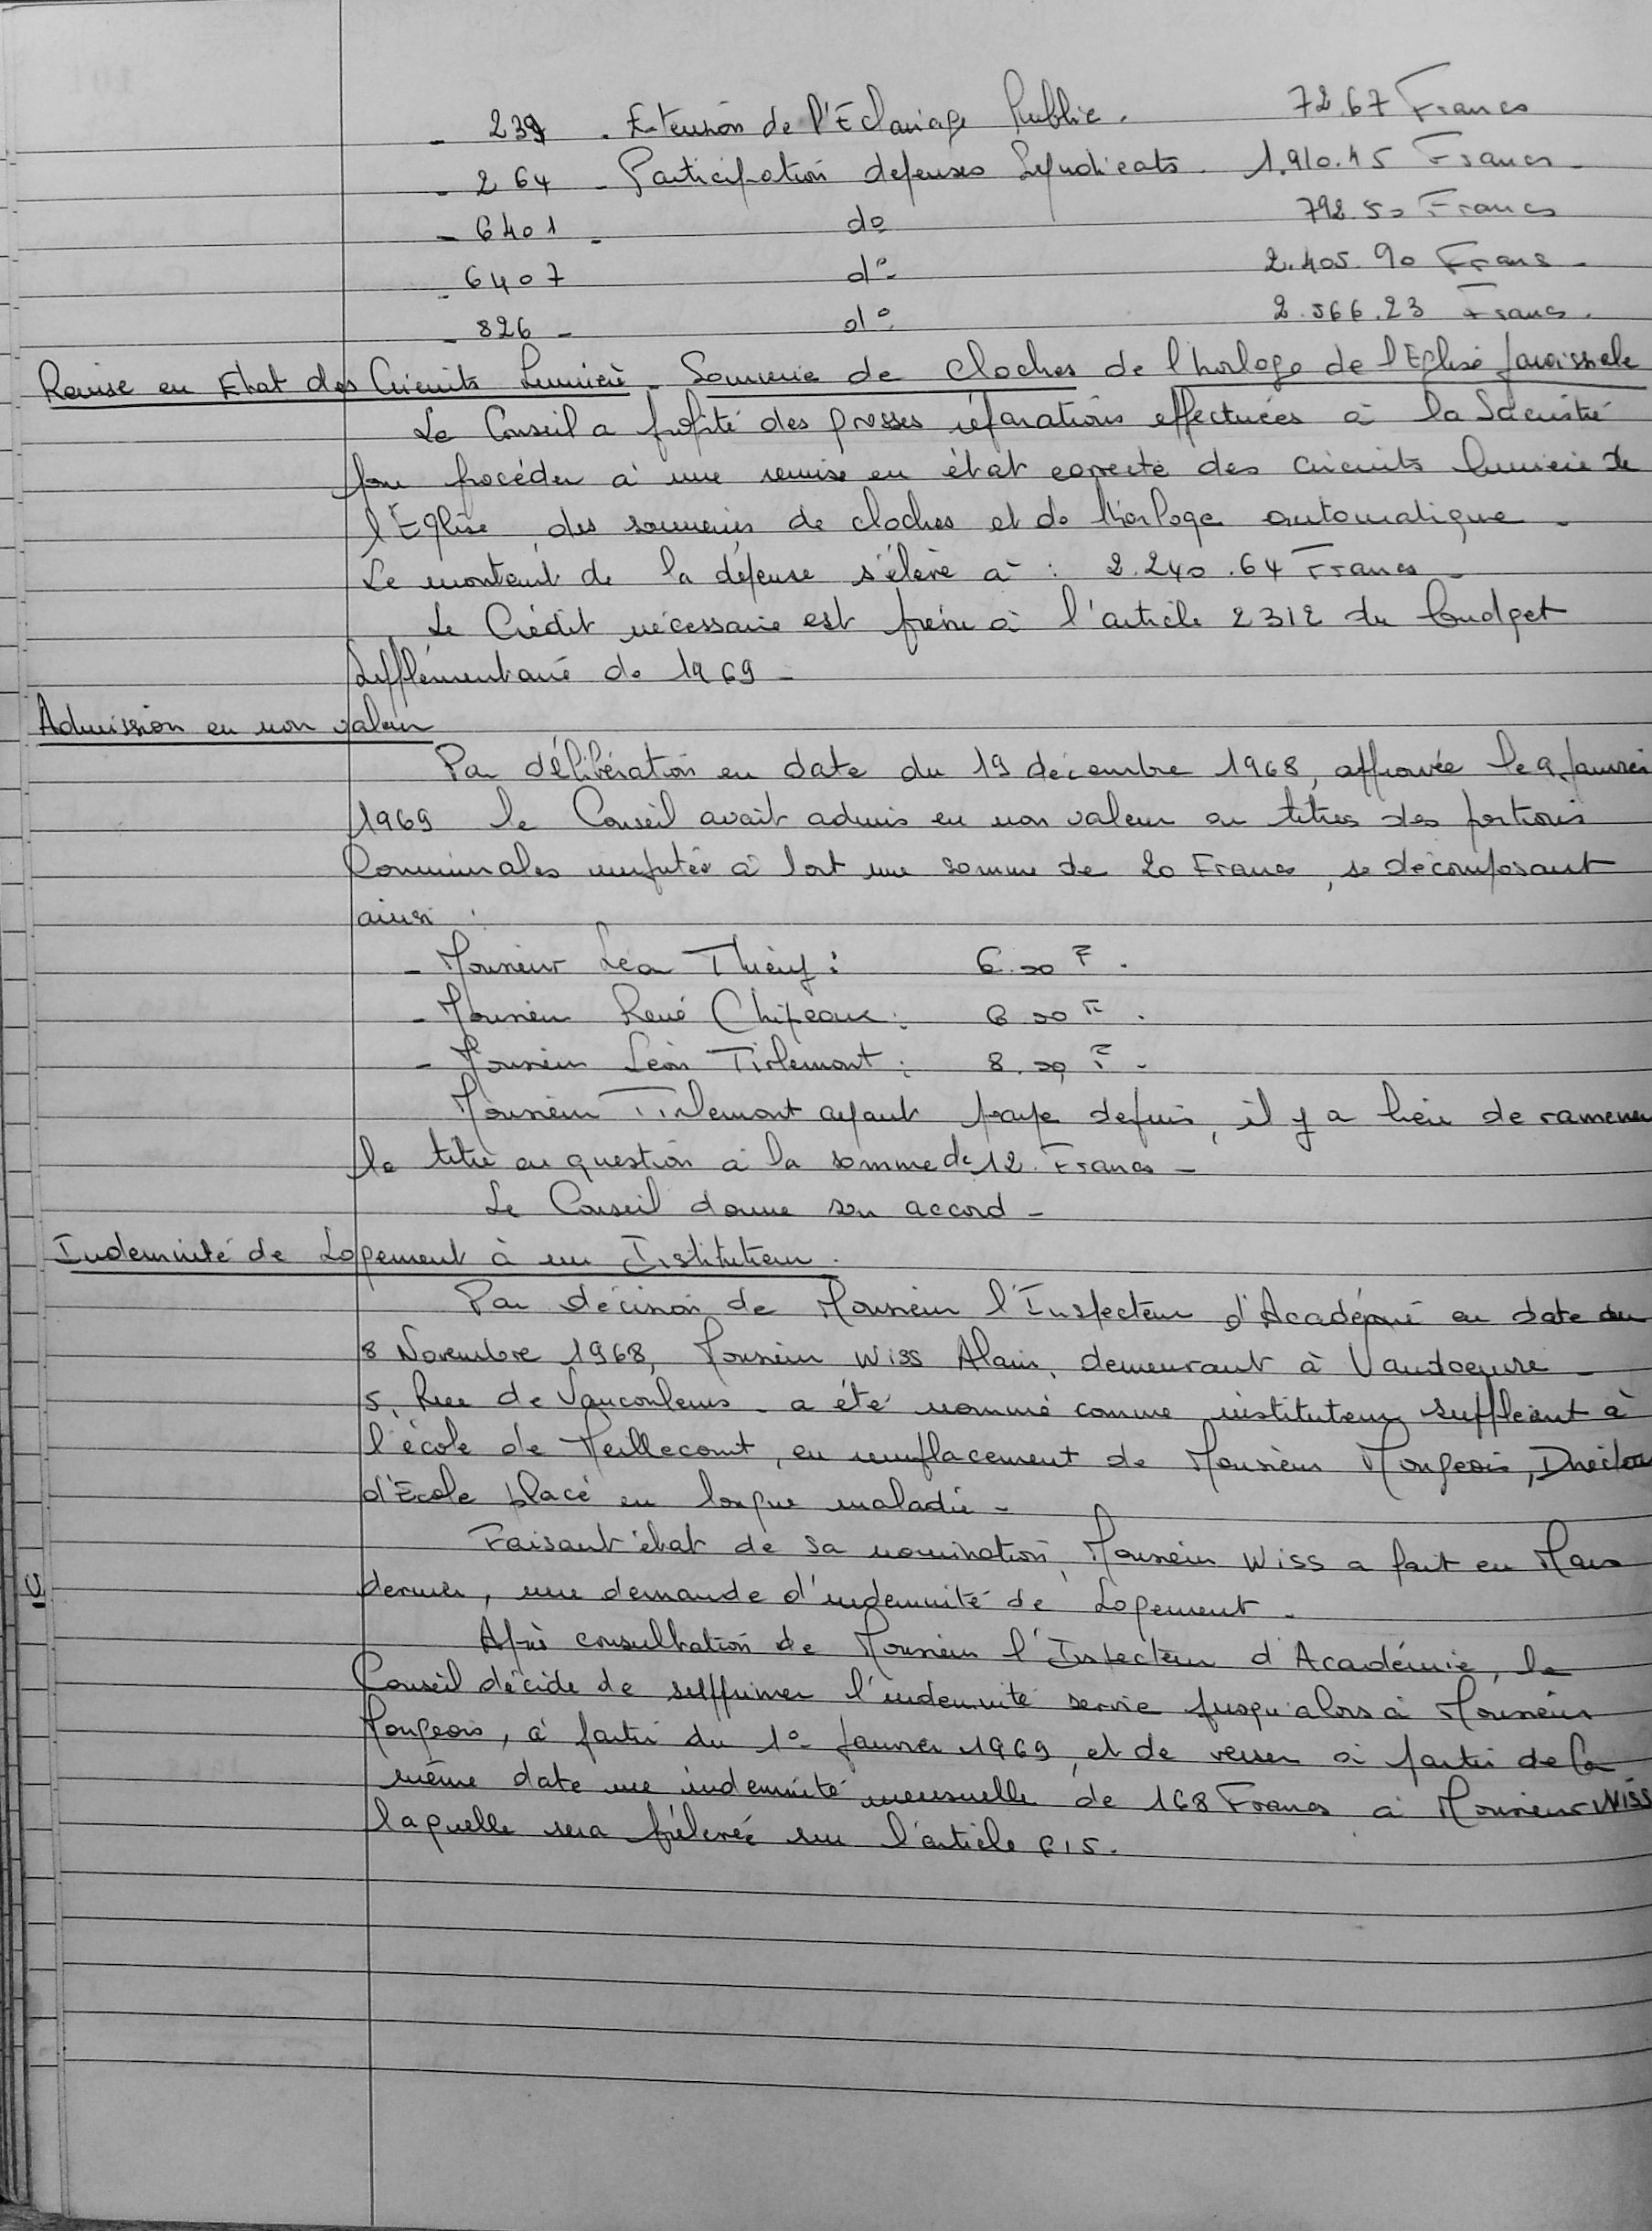 - 239 - Extension de l'Eclairage Public. 72.67 Francs
- 264 - Participation depenses Syndicats - 1.910.45 Francs -
- 6401 - do 792.50 Francs
- 6407 do 2.405.90 Francs -
- 826 - do 2.566.23 Francs.
Remise en Etat des Circuits Lumière - Sonnerie de Cloches de l'horloge de l'Eglise paroissiale
Le Conseil a profité des grosses réparations effectuées à la Sacristie
pour procéder à une remise en état correcte des circuits lumière de
l'Eglise, des sonneries de cloches et de l'horloge automatique -
Le montant de la dépense s'élève à : 2.240.64 Francs -
Le Crédit nécessaire est prévu à l'article 2312 du budget
Supplémentaire de 1969 -
Admission en non valeur
Par délibération en date du 19 décembre 1968, approuvée le 9 Janvier
1969 le Conseil avait admis en non valeur au titres des portions
Communales imputés à tort une somme de 20 Francs, se décomposant
ainsi :
- Monsieur Léon Thiery : 6.00 F.
- Monsieur René Chipeaux : 6.00 F.
- Monsieur Léon Tirlemont : 8.00 F -
Monsieur Tirlemont ayant payé depuis, il y a lieu de ramener
le titre en question à la somme de 12 Francs -
Le Conseil donne son accord -
Indemnité de Logement à un Instituteur.
Par décision de Monsieur l'Inspecteur d'Académie en date du
8 Novembre 1968, Monsieur Wiss Alain, demeurant à Vandoeuvre -
5, Rue de Vaucouleurs - a été nommé comme instituteur suppléant à
l'école de Meillecourt, en remplacement de Monsieur Mongeois, Directeur
d'Ecole placé en longue maladie -
Faisant état de sa nomination, Monsieur Wiss a fait en Mars
dernier, une demande d'indemnité de Logement -
Après consultation de Monsieur l'Inspecteur d'Académie, le
Conseil décide de supprimer l'indemnité servie jusqu'alors à Monsieur
Mongeois, à partir du 1o Janvier 1969, et de verser à partir de la
même date une indemnité mensuelle de 168 Francs à Monsieur Wiss
laquelle sera prélevée sur l'article 615.